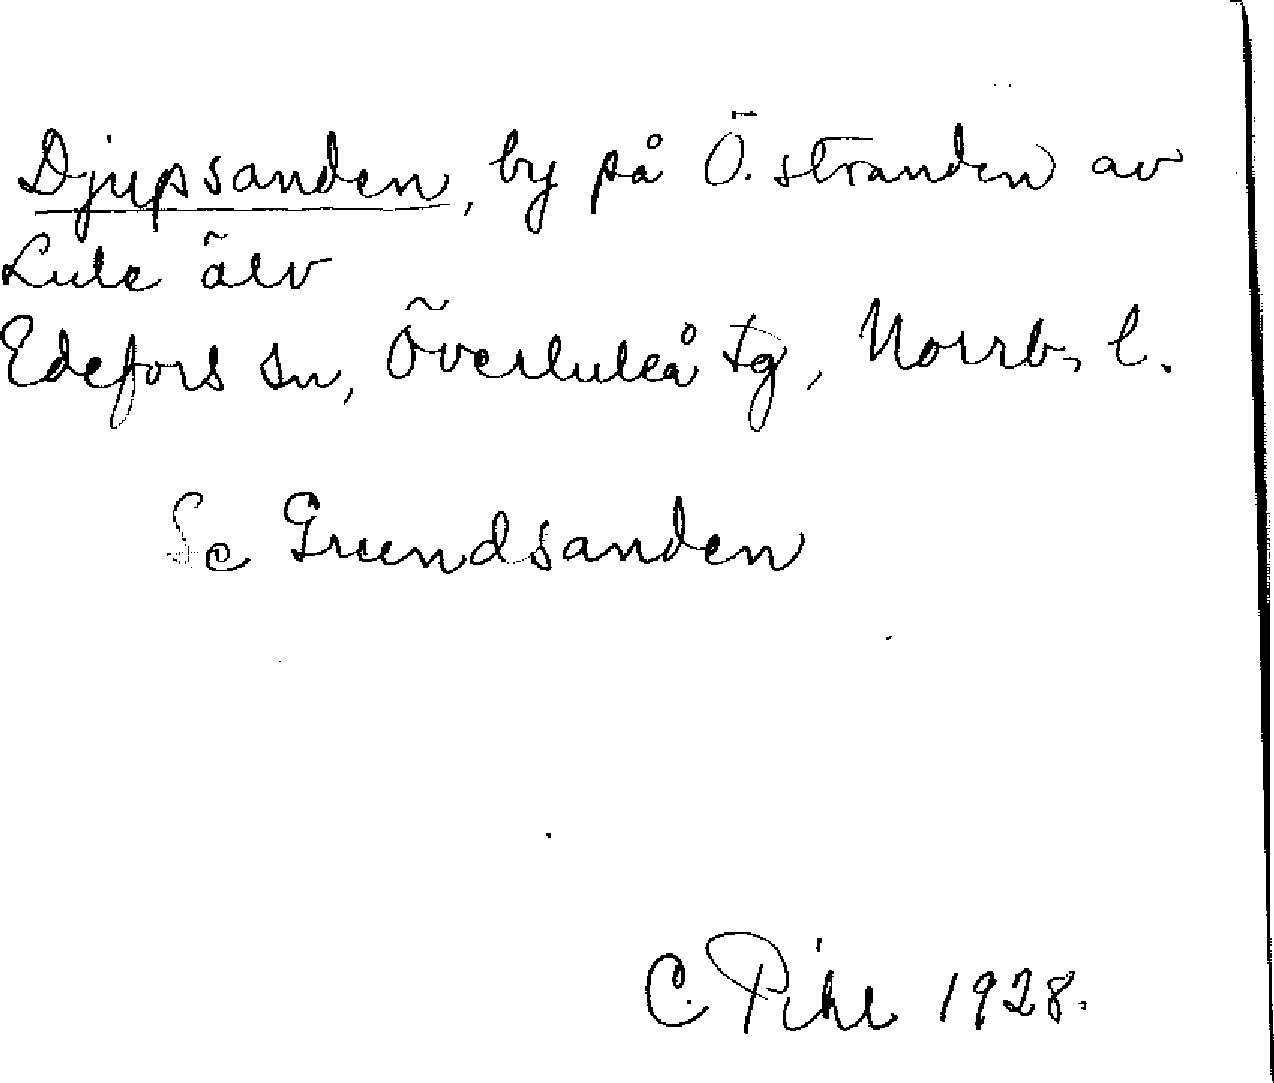 Djupsanden, by på Ö. stranden av
Lule älv
Edefors sn, Överluleå tg, Norrb. l.
Se Grundsanden
C. Pihl 1928.